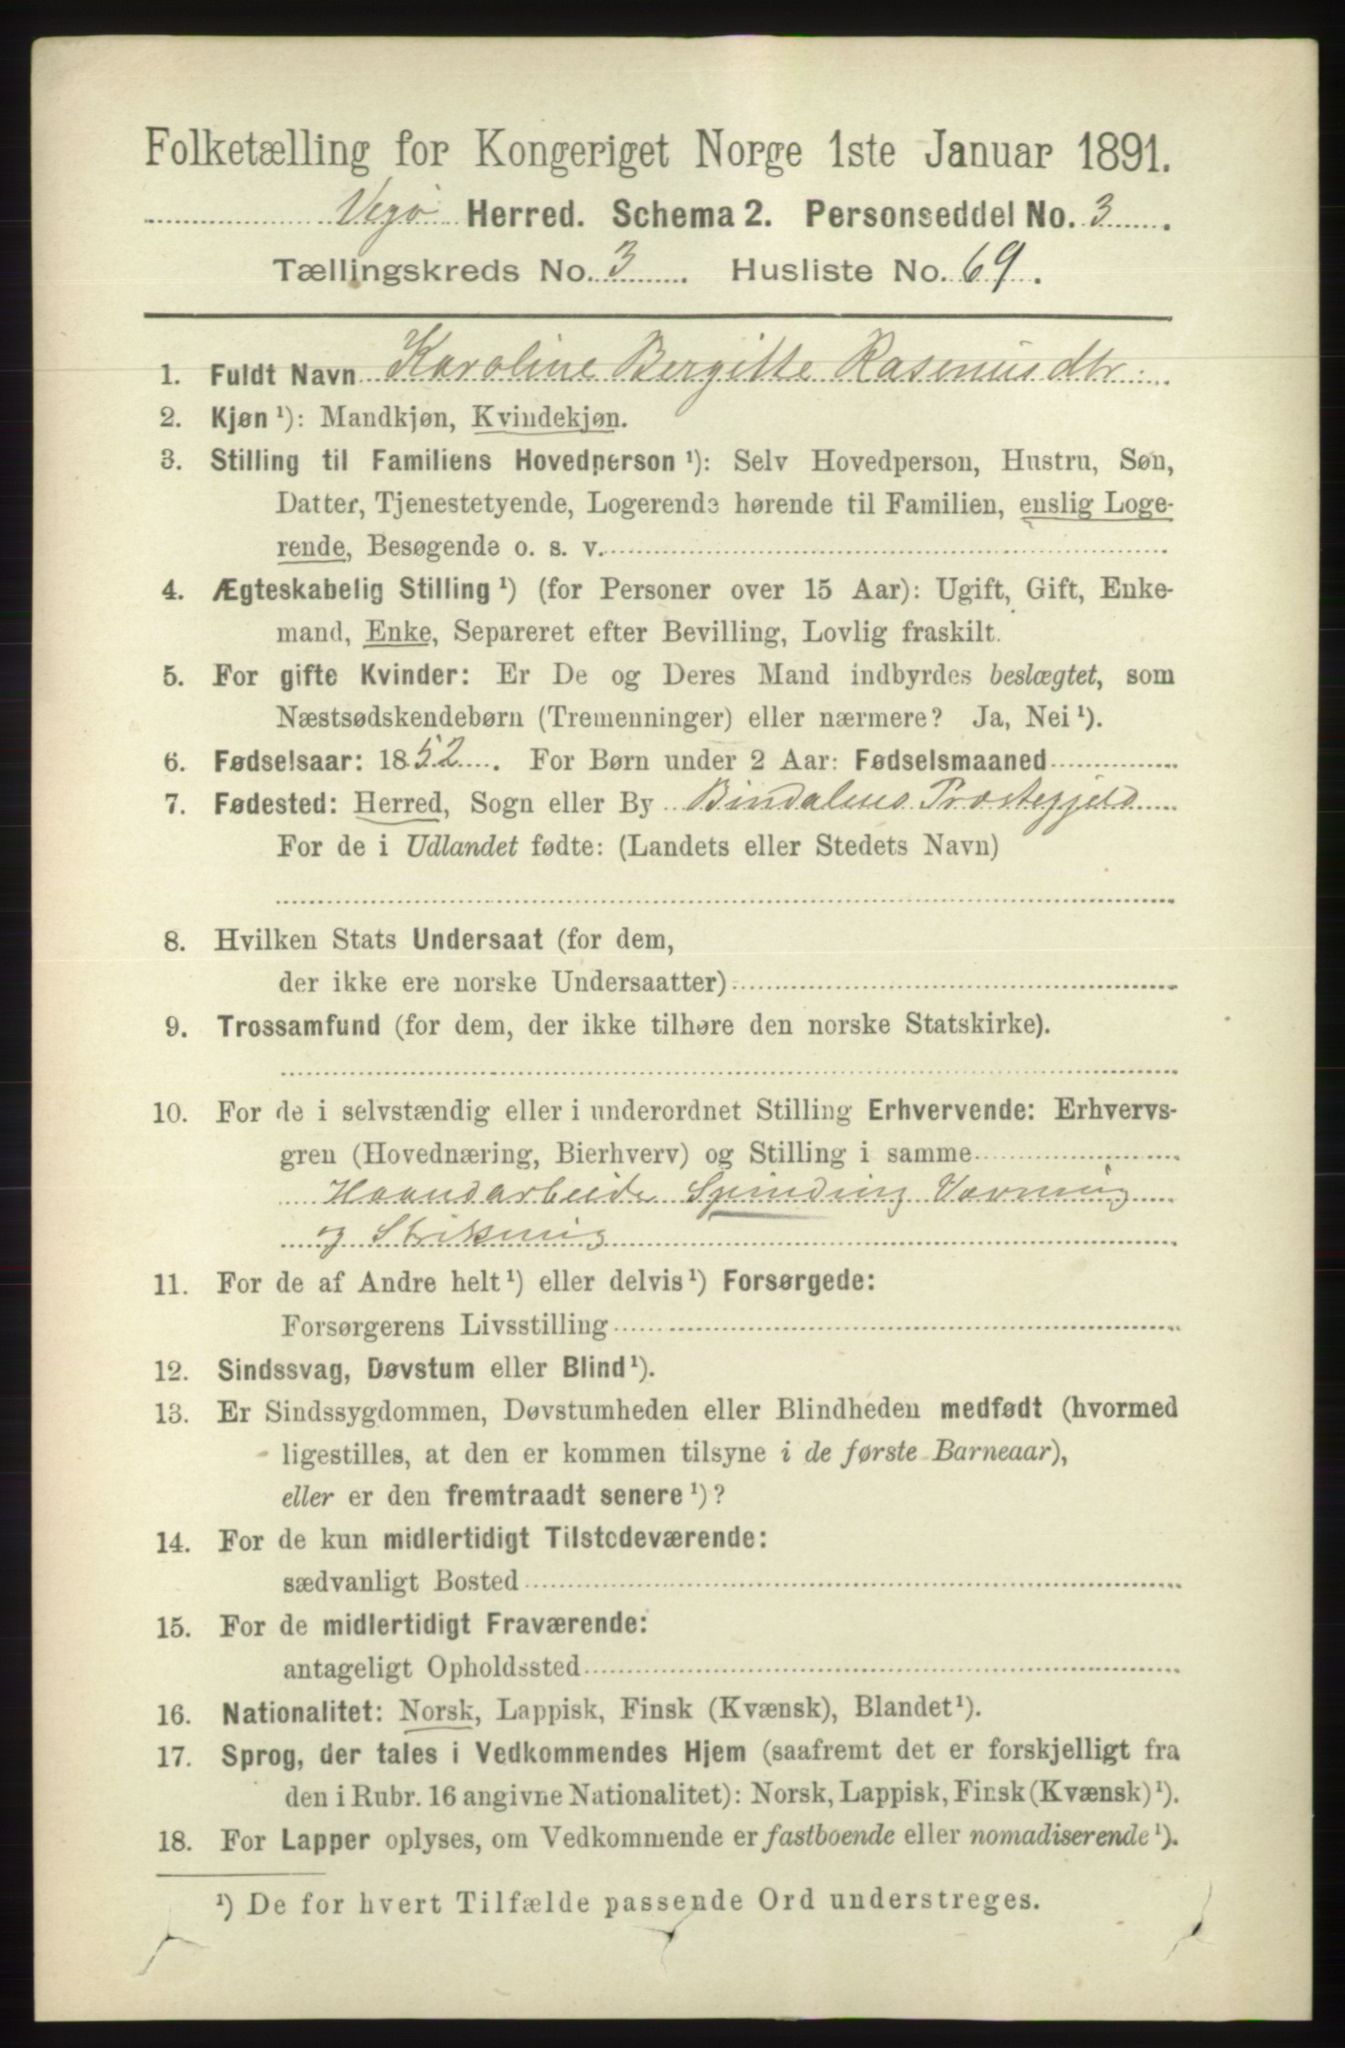 Folketælling for Kongeriget Norge 1ste Januar 1891.
Vegø Herred. Schema 2. Personseddel No. 3.
Tællingskreds No. 3. Husliste No. 69.
1. Fuldt Navn Karoline Bergitte Rasmusdtr.
2. Kjøn ¹): Mandkjøn, Kvindekjøn.
3. Stilling til Familiens Hovedperson ¹): Selv Hovedperson, Hustru, Søn,
Datter, Tjenestetyende, Logerende hørende til Familien, enslig Loge-
rende, Besøgende o. s. v.
4. Ægteskabelig Stilling ¹) (for Personer over 15 Aar): Ugift, Gift, Enke-
mand, Enke, Separeret efter Bevilling, Lovlig fraskilt.
5. For gifte Kvinder: Er De og Deres Mand indbyrdes beslægtet, som
Næstsødskendebørn (Tremenninger) eller nærmere? Ja, Nei ¹).
6. Fødselsaar: 1852. For Børn under 2 Aar: Fødselsmaaned
7. Fødested: Herred, Sogn eller By Bindalens Prostegjeld
For de i Udlandet fødte: (Landets eller Stedets Navn)
8. Hvilken Stats Undersaat (for dem,
der ikke ere norske Undersaatter)
9. Trossamfund (for dem, der ikke tilhøre den norske Statskirke).
10. For de i selvstændig eller i underordnet Stilling Erhvervende: Erhvervs-
gren (Hovednæring, Bierhverv) og Stilling i samme
Haandarbeide Spinding Vævning
og Strikning
11. For de af Andre helt ¹) eller delvis ¹) Forsørgede:
Forsørgerens Livsstilling
12. Sindssvag, Døvstum eller Blind ¹).
13. Er Sindssygdommen, Døvstumheden eller Blindheden medfødt (hvormed
ligestilles, at den er kommen tilsyne i de første Barneaar),
eller er den fremtraadt senere ¹)?
14. For de kun midlertidigt Tilstedeværende:
sædvanligt Bosted
15. For de midlertidigt Fraværende:
antageligt Opholdssted
16. Nationalitet: Norsk, Lappisk, Finsk (Kvænsk), Blandet ¹).
17. Sprog, der tales i Vedkommendes Hjem (saafremt det er forskjelligt fra
den i Rubr. 16 angivne Nationalitet): Norsk, Lappisk, Finsk (Kvænsk) ¹).
18. For Lapper oplyses, om Vedkommende er fastboende eller nomadiserende ¹).
¹) De for hvert Tilfælde passende Ord understreges.